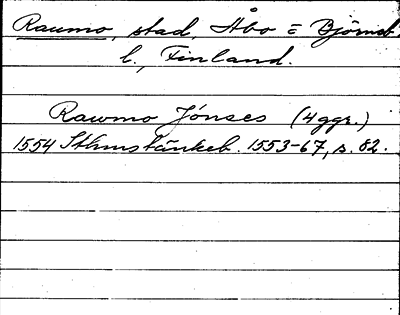 Raumo, stad, Åbo = Björneb.
l., Finland.
Rawmo Jönses (4 ggr.)
1554 Sthmstänkeb. 1553-67, s. 82.